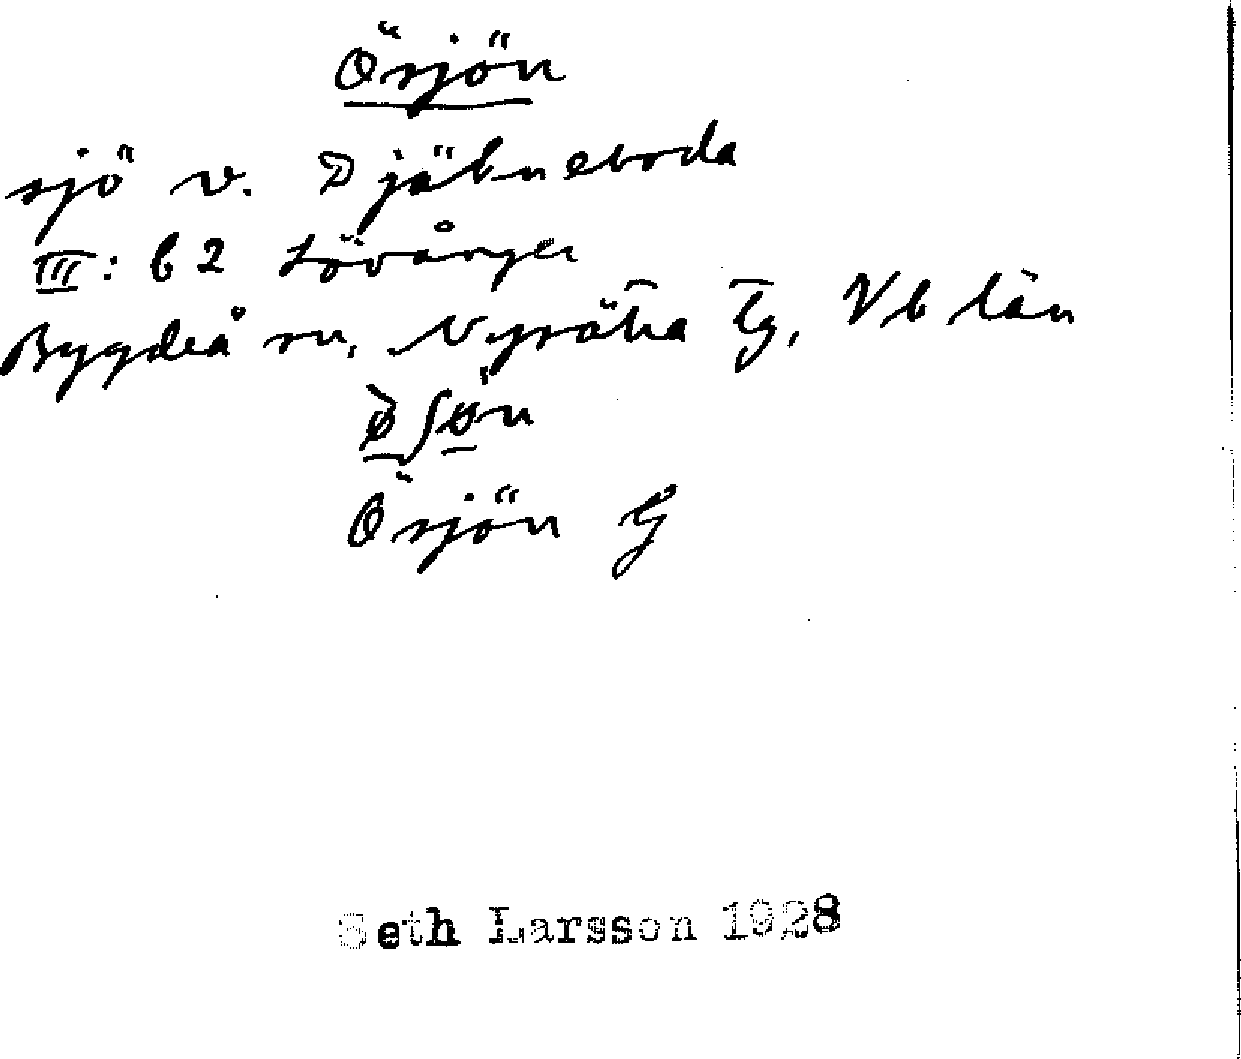 Örsjön
sjö v. Djäkneboda
III: b2 Lövånger
Bygdeå sn, Nysätra Tg, Vb län
Örsjön G
Seth Larsson 1928